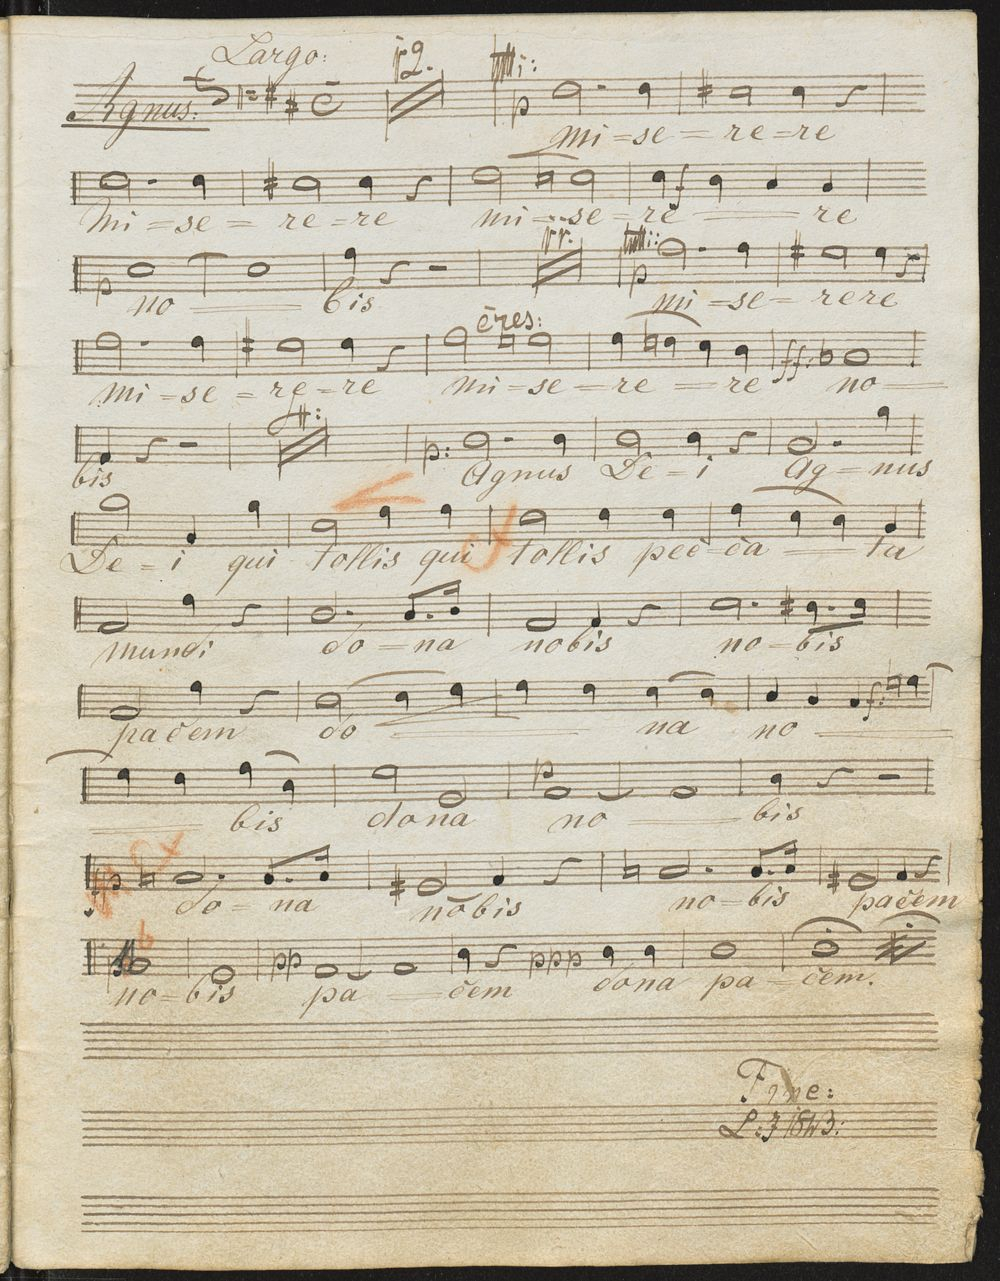 Largo:
Agnus: 12. tutti: p
mi = se = re = re
mi = se = re = re mi = se = re re
f
p rr. tutti: p
no bis mi = se = rere
cres:
mi = se = re = re mi = se = re re no
ff:
p:
bis Agnus De = i Ag = nus
De = i qui tollis qui tollis pecca ta
mundi do = na nobis no = bis
f:
pacem do na no
p
bis dona no bis
p
do = na nobis no = bis pacem
pp ppp
no = bis pa cem dona pa = cem.
Fine:
1843: